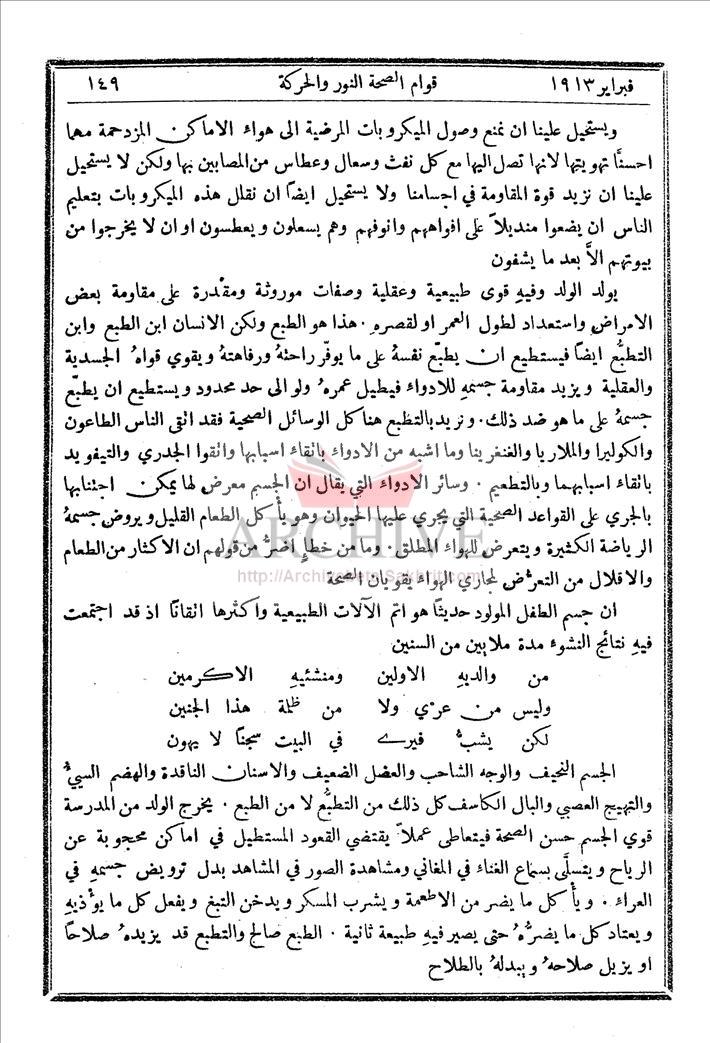 فبراير ١٩١٣
قوام الصحة النور والحركة
١٤٩
ويستحيل علينا ان نمنع وصول الميكروبات المرضية الى هواء الاماكن المزدحمة مهما
احسنَّا تهويتها لانها تصل اليها مع كل نفث وسعال وعطاس من المصابين بها ولكن لا يستحيل
علينا ان نزيد قوة المقاومة في اجسامنا ولا يستحيل ايضاً ان نقلل هذه الميكروبات بتعليم
الناس ان يضعوا منديلاً على افواههم وانوفهم وهم يسعلون ويعطسون او ان لا يخرجوا من
بيوتهم الاَّ بعد ما يشفون
يولد الولد وفيهِ قوى طبيعية وعقلية وصفات موروثة ومقْدرة على مقاومة بعض
الامراض واستعداد لطول العمر او لقصرهِ . هذا هو الطبع ولكن الانسان ابن الطبع وابن
التطبُّع ايضاً فيستطيع ان يطبّع نفسهُ على ما يوفّر راحتهُ ورفاهتهُ ويقوي قواهُ الجسدية
والعقلية ويزيد مقاومة جسمهِ للادواء فيطيل عمرهُ ولو الى حد محدود ويستطيع ان يطبّع
جسمهُ على ما هو ضد ذلك . ونريد بالتطبع هنا كل الوسائل الصحية فقد اتقى الناس الطاعون
والكوليرا والملاريا والغنغرينا وما اشبه من الادواء باتقاء اسبابها واتقوا الجدري والتيفويد
باتقاء اسبابهما وبالتطعيم . وسائر الادواء التي يقال ان الجسم معرض لها يمكن اجتنابها
بالجري على القواعد الصحية التي يجري عليها الحيوان وهو يأكل الطعام القليل ويروض جسمهُ
الرياضة الكثيرة ويتعرض للهواء المطلق . وما من خطاءٍ اضرُّ من قولهم ان الاكثار من الطعام
والاقلال من التعرُّض لمجاري الهواء يقويان الصحة
ان جسم الطفل المولود حديثاً هو اتم الآلات الطبيعية واكثرها اتقاناً اذ قد اجتمعت
فيهِ نتائج النشوء مدة ملايين من السنين
من والديهِ الاولين ومنشئيهِ الاكرمين
وليس من عرْي ولا من ظلمة هذا الجنين
لكن يشبُّ فيرى في البيت سجناً لا يهون
الجسم النحيف والوجه الشاحب والعضل الضعيف والاسنان الناقدة والهضم السيئُ
والتهيج العصبي والبال الكاسف كل ذلك من التطبُّع لا من الطبع . يخرج الولد من المدرسة
قوي الجسم حسن الصحة فيتعاطى عملاً يقتضي القعود المستطيل في اماكن محجوبة عن
الرياح ويتسلَّى بسماع الغناء في المغاني ومشاهدة الصور في المشاهد بدل ترويض جسمهِ في
العراء . ويأكل ما يضر من الاطعمة ويشرب المسكر ويدخن التبغ ويفعل كل ما يوْذيهِ
ويعتاد كل ما يضرُّهُ حتى يصير فيهِ طبيعة ثانية . الطبع صالح والتطبع قد يزيدهُ صلاحاً
او يزيل صلاحهُ ويبدلهُ بالطلاح
ARCHIVE
http://Archivebeta.Sakhrit.com